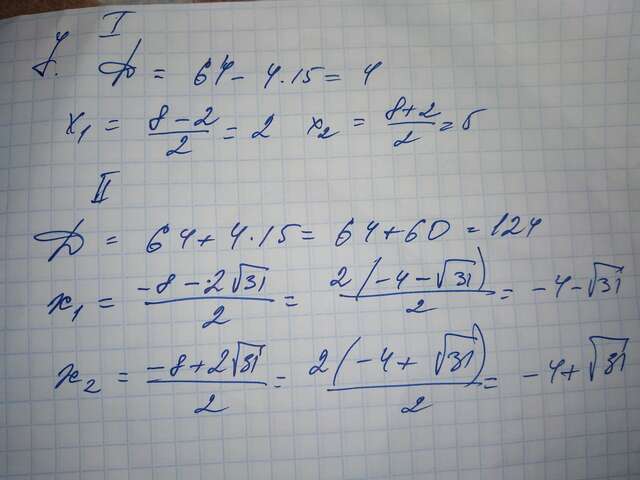 I
D = 64 - 4·15 = 4
x₁ = (8-2)/2 = 2 x₂ = (8+2)/2 = 5
II
D = 64 + 4·15 = 64 + 60 = 124
x₁ = (-8 - 2√31)/2 = 2(-4 - √31)/2 = -4 - √31
x₂ = (-8 + 2√31)/2 = 2(-4 + √31)/2 = -4 + √31